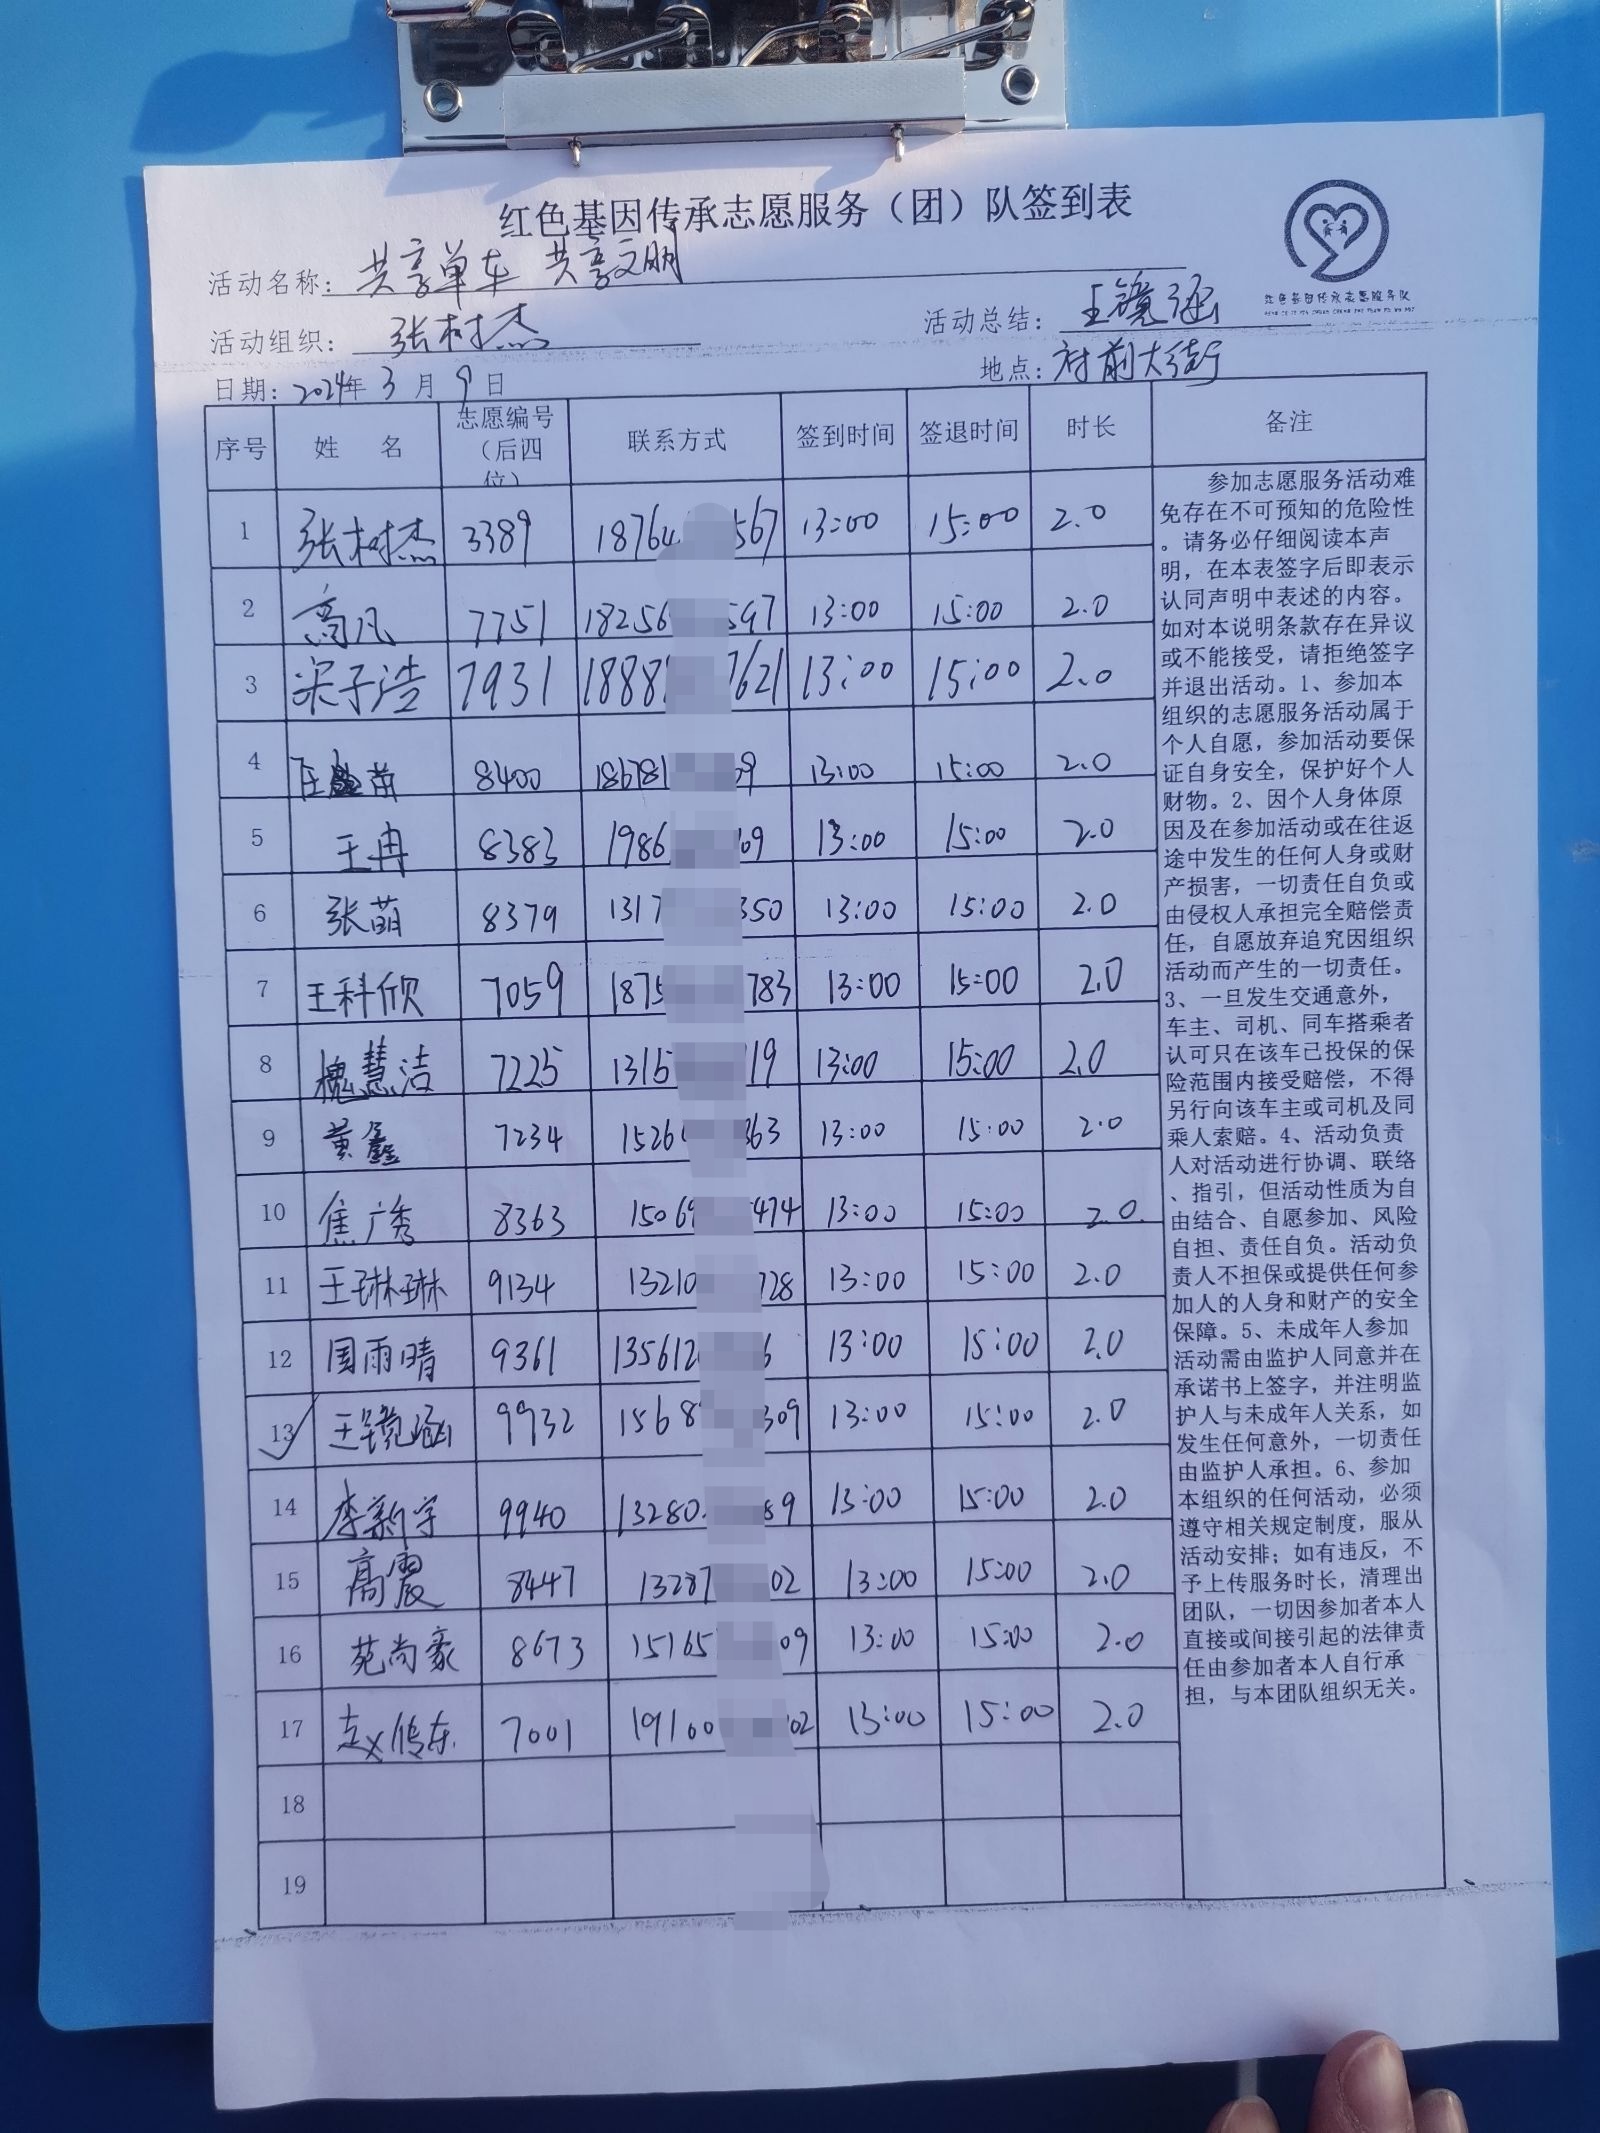 红色基因传承志愿服务（团）队签到表
活动名称：共享单车 共享文明
红色基因传承志愿服务队
活动组织：张树杰 活动总结：王镜涵
日期：2024年 3 月 9 日 地点：府前大街
序号 姓 名 志愿编号（后四位） 联系方式 签到时间 签退时间 时长 备注
1 张树杰 3389 1876 567 13:00 15:00 2.0
2 高凡 7751 18256 597 13:00 15:00 2.0
3 宋子浩 7931 1888 7621 13:00 15:00 2.0
4 苗 8400 18678 09 13:00 15:00 2.0
5 王冉 8383 1986 09 13:00 15:00 2.0
6 张萌 8379 1317 350 13:00 15:00 2.0
7 王科欣 7059 1875 783 13:00 15:00 2.0
8 槐慧洁 7225 1315 19 13:00 15:00 2.0
9 黄鑫 7234 1526 363 13:00 15:00 2.0
10 焦广秀 8363 1506 474 13:00 15:00 2.0
11 王琳琳 9134 13210 728 13:00 15:00 2.0
12 国雨晴 9361 135612 6 13:00 15:00 2.0
13 王镜涵 9932 1568 309 13:00 15:00 2.0
14 李新宇 9940 13280 89 13:00 15:00 2.0
15 高震 8447 13287 02 13:00 15:00 2.0
16 苑尚豪 8673 15165 09 13:00 15:00 2.0
17 赵传东 7001 19100 02 13:00 15:00 2.0
18
19
参加志愿服务活动难
免存在不可预知的危险性
。请务必仔细阅读本声
明，在本表签字后即表示
认同声明中表述的内容。
如对本说明条款存在异议
或不能接受，请拒绝签字
并退出活动。1、参加本
组织的志愿服务活动属于
个人自愿，参加活动要保
证自身安全，保护好个人
财物。2、因个人身体原
因及在参加活动或在往返
途中发生的任何人身或财
产损害，一切责任自负或
由侵权人承担完全赔偿责
任，自愿放弃追究因组织
活动而产生的一切责任。
3、一旦发生交通意外，
车主、司机、同车搭乘者
认可只在该车已投保的保
险范围内接受赔偿，不得
另行向该车主或司机及同
乘人索赔。4、活动负责
人对活动进行协调、联络
、指引，但活动性质为自
由结合、自愿参加、风险
自担、责任自负。活动负
责人不担保或提供任何参
加人的人身和财产的安全
保障。5、未成年人参加
活动需由监护人同意并在
承诺书上签字，并注明监
护人与未成年人关系，如
发生任何意外，一切责任
由监护人承担。6、参加
本组织的任何活动，必须
遵守相关规定制度，服从
活动安排；如有违反，不
予上传服务时长，清理出
团队，一切因参加者本人
直接或间接引起的法律责
任由参加者本人自行承
担，与本团队组织无关。